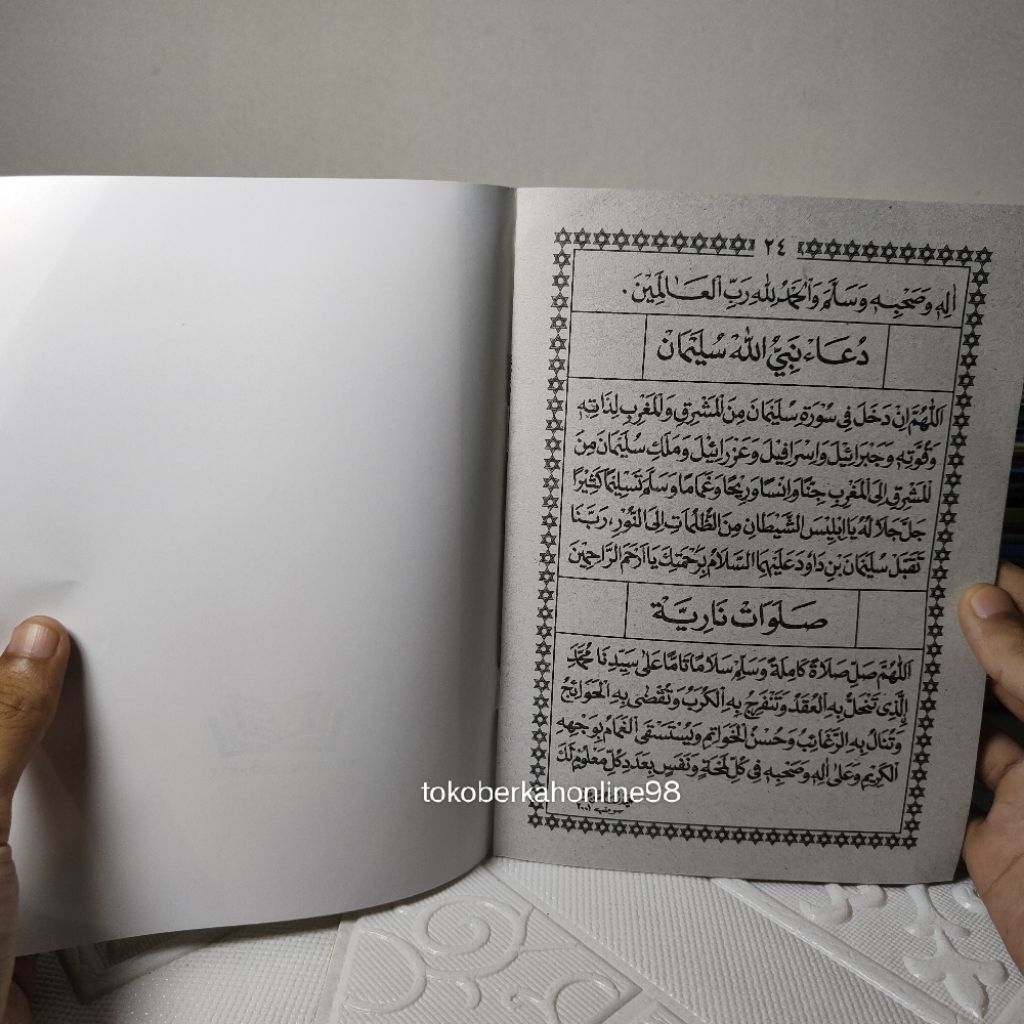 ٢٤
اٰلِهِ وَصَحْبِهِ وَسَلَّمَ وَالْحَمْدُ لِلّٰهِ رَبِّ الْعَالَمِيْنَ.
دُعَاءْ نَبِيُّ اللّٰهْ سُلَيْمَانْ
اَللّٰهُمَّ اِنْ دَخَلَ فِى سُوْرَةِ سُلَيْمَانَ مِنَ الْمَشْرِقِ وَالْمَغْرِبِ لِذَاتِهِ
وَقُوَّتِهِ وَجَبْرَائِيْلَ وَاِسْرَافِيْلَ وَعَزْرَائِيْلَ وَمَلَكِ سُلَيْمَانَ مِنَ
الْمَشْرِقِ اِلَى الْمَغْرِبِ جِنًّا وَاِنْسًا وَرِيْحًا وَغَمَامًا وَسَلَّمَ تَسْلِيْمًا كَثِيْرًا
جَلَّ جَلَالُهُ يَا اِبْلِيْسَ الشَّيْطَانِ مِنَ الظُّلُمَاتِ اِلَى النُّوْرِ، رَبَّنَا
تَقَبَّلْ سُلَيْمَانَ بْنِ دَاوُدَ عَلَيْهِمَا السَّلَامُ بِرَحْمَتِكَ يَا اَرْحَمَ الرَّاحِمِيْنَ
صَلَوَاتْ نَارِيَّةْ
اَللّٰهُمَّ صَلِّ صَلَاةً كَامِلَةً وَسَلِّمْ سَلَامًا تَامًّا عَلٰى سَيِّدِنَا مُحَمَّدٍ
الَّذِى تَنْحَلُّ بِهِ الْعُقَدُ وَتَنْفَرِجُ بِهِ الْكُرَبُ وَتُقْضٰى بِهِ الْحَوَائِجُ
وَتُنَالُ بِهِ الرَّغَائِبُ وَحُسْنُ الْخَوَاتِمِ وَيُسْتَسْقَى الْغَمَامُ بِوَجْهِهِ
الْكَرِيْمِ وَعَلٰى اٰلِهِ وَصَحْبِهِ فِى كُلِّ لَمْحَةٍ وَنَفَسٍ بِعَدَدِ كُلِّ مَعْلُوْمٍ لَكَ
tokoberkahonline98